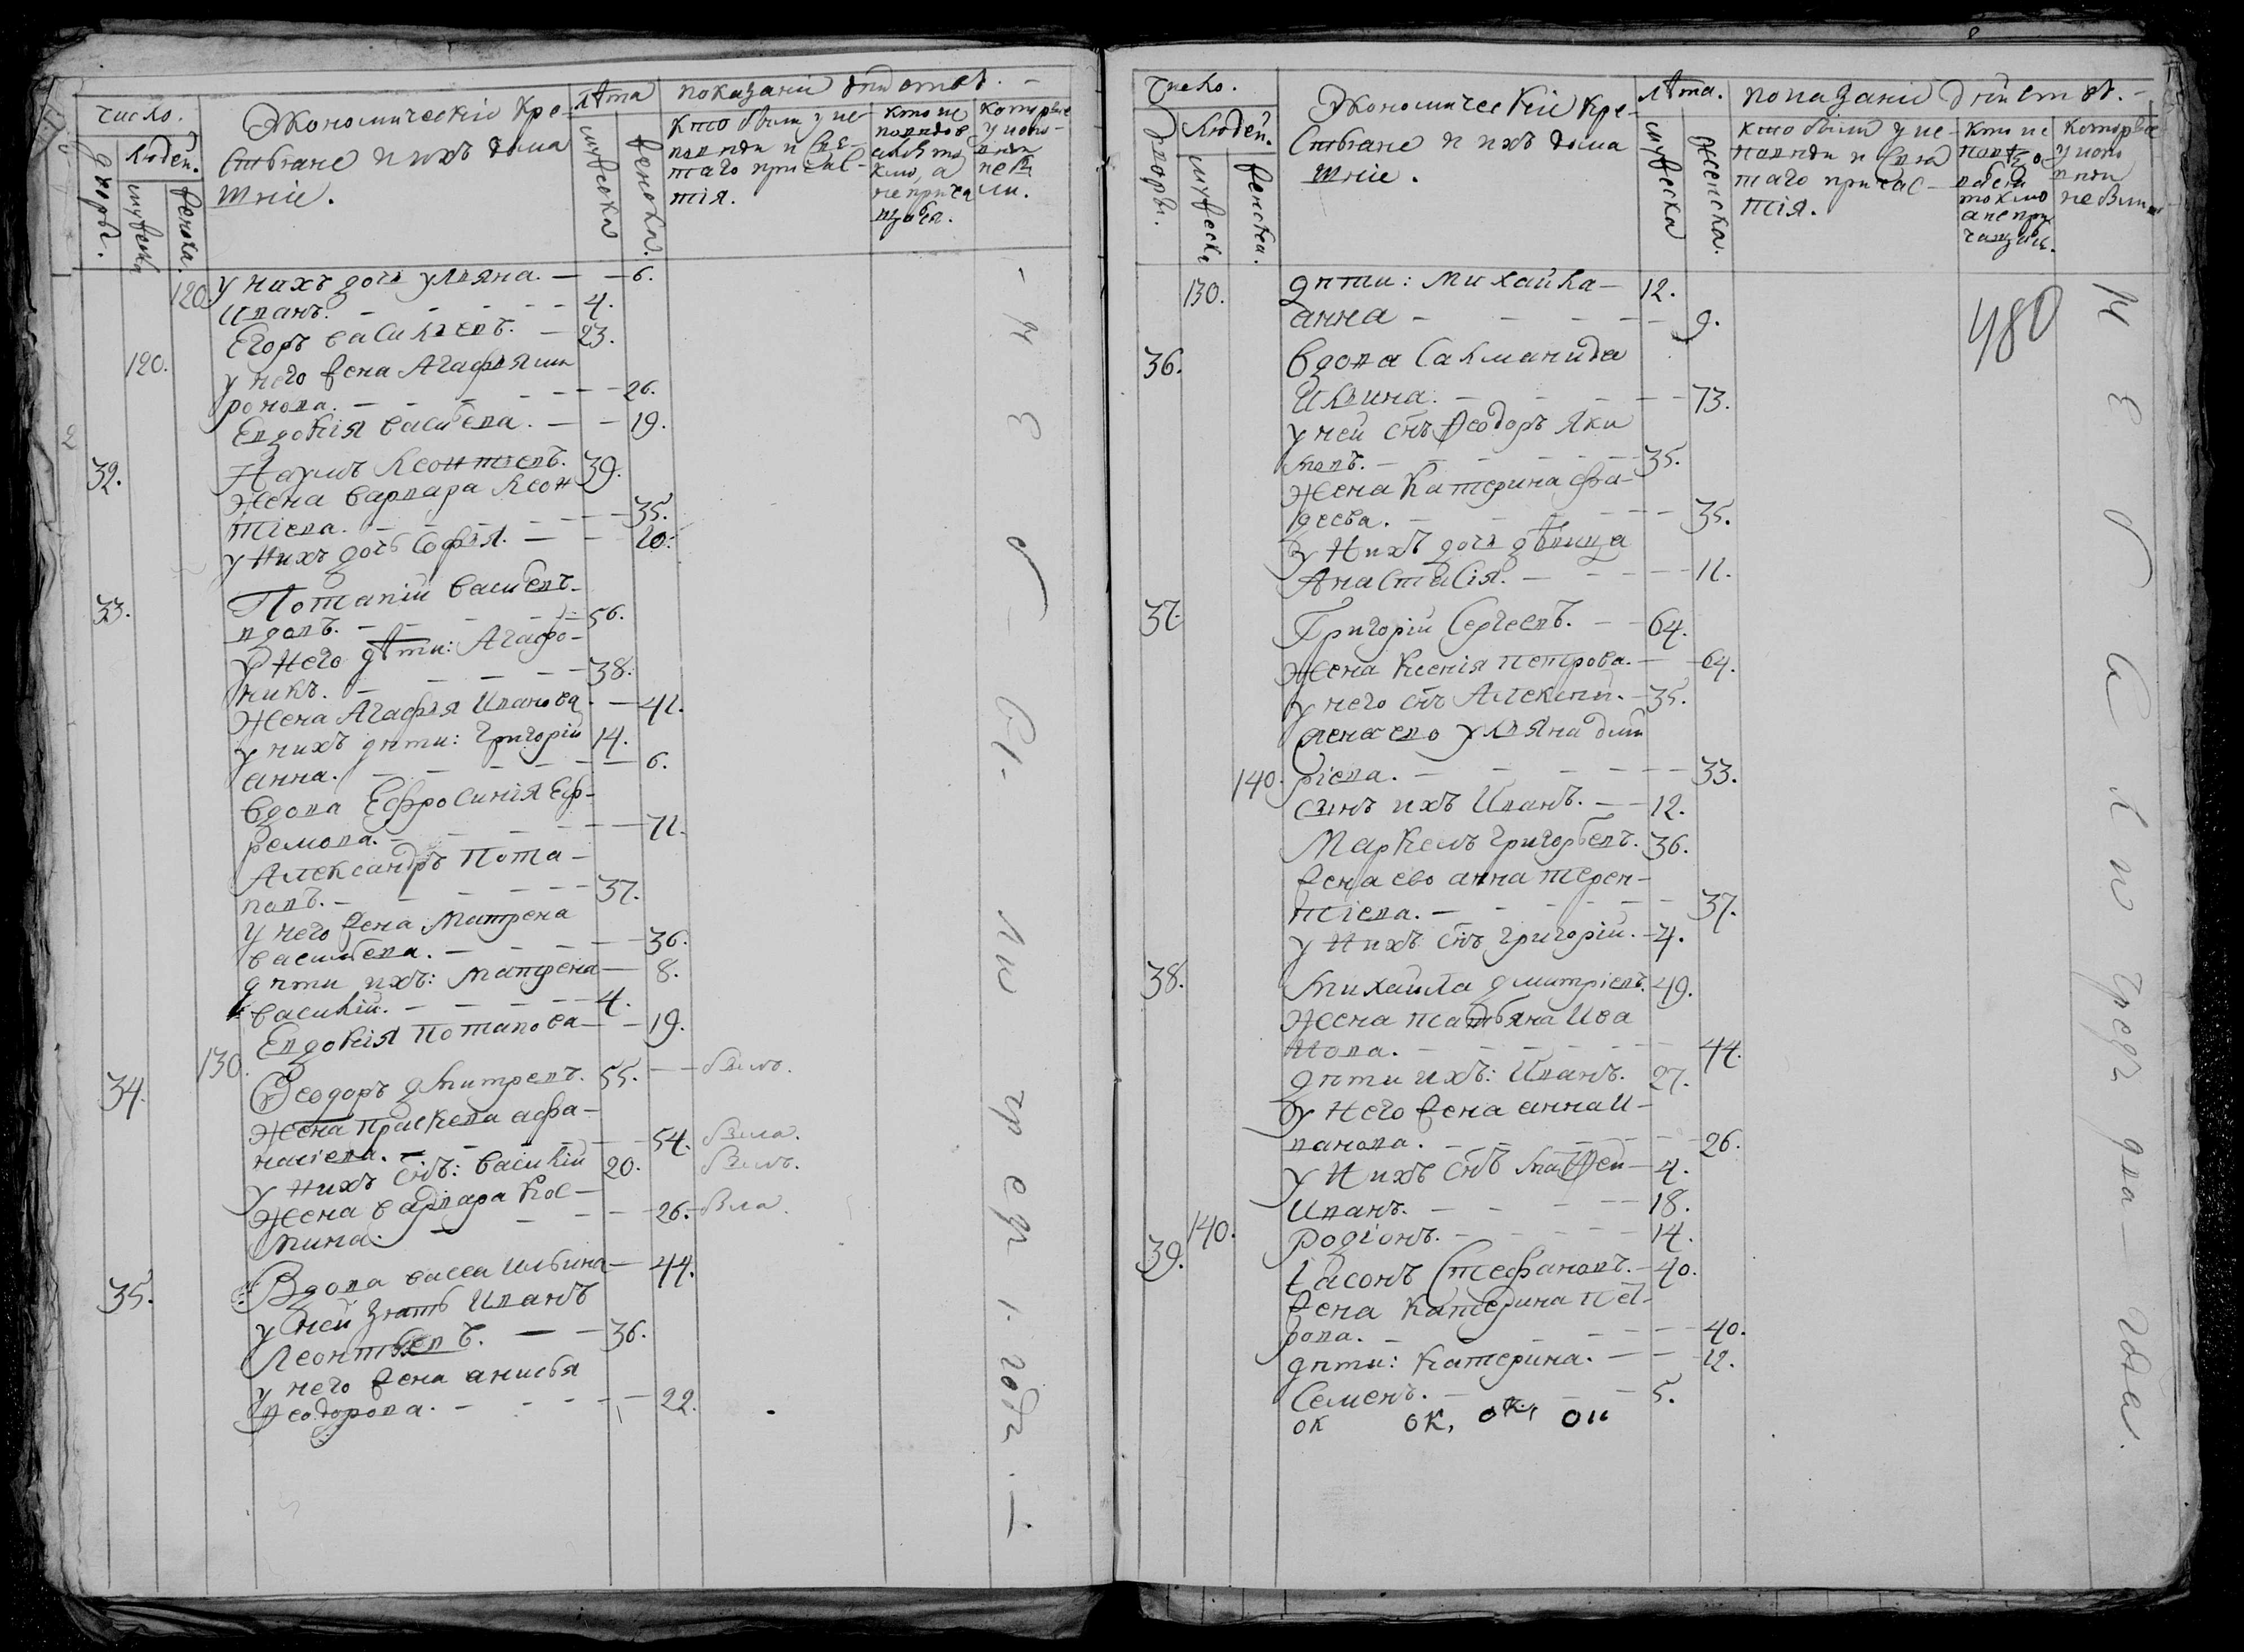 число.
людей.
дворы.
мужеска
женска.
Экономическіе кре-
стьяне и ихъ дома
шніе.
лѣта
мужеска
женска.
показаніе дѣйства. -
кто были у ис-
поведи и свя-
таго причас-
тія.
кто не
исповедо
ток
мо, а
не прича
щался.
которые
у испо-
веди
не бы
ли.
120. у нихъ дочь ульяна. - - 6.
Иванъ. - - - - - 4.
Егоръ васильевъ. - 23.
120. у него жена Агафья ми
ронова. - - - - - 26.
Евдокія васильева. - - 19.
32. Наумъ Леонтіевъ. 39.
Жена варвара Леон
тіева. - - - - - 35.
у нихъ дочь софья. - - 10.
33. Потапій васильевъ-
вдовъ. - - - - - 56.
У него дѣти: Агафо-
никъ. - - - - - 38.
Жена Агафья Иванова. - 41.
у нихъ дети: григорій 14.
анна. - - - - - 6.
вдова Ефросинія Еф-
ремова. - - - - - 71.
Александръ Пота-
повъ. - - - - - 37.
у него жена Матрена
васильева. - - - - 36.
дети ихъ: Матрена - 8.
василій. - - - - 4.
Евдокія потапова - - 19.
130.
34. Ѳеодоръ дмитревъ. 55. - - былъ.
Жена праскева афа-
насіева. - - - - 54. была.
у нихъ снъ: василій 20. былъ.
Жена варвара Кос-
мина. - - - - 26. - была.
35. Вдова васса ильина - 44.
у ней зять Иванъ
Леонтьевъ. - - 36.
у него жена анисья
Ѳеодорова. - - - - 22.
- н е б ы л и чрезъ 1. годъ. -
число.
людей.
дворы.
мужеска
женска.
Экономическіе кре-
стьяне и ихъ дома
шніе.
лѣта.
мужеска
женска.
показаніе дѣйства. -
кто были у ис-
поведи и свя
таго причас-
тія.
кто не
токмо
а не при
чащались.
которые
у испо
веди
не были
130. дети: Михайла - 12.
анна - - - - - 9.
480
36. вдова Саламанида
Ильина. - - - - 73.
у ней снъ Ѳеодоръ Яки
мовъ. - - - - - 35.
Жена катерина фа-
деева. - - - - - 35.
у нихъ дочь дѣвица
Анастасія. - - - - 11.
37. Григорій Сергеевъ. - - 64.
Жена Ксенія петрова. - - 64.
у него снъ Алексѣй. - 35.
жена ево ульяна дмит
140. ріева. - - - - - 33.
сынъ ихъ Иванъ. - - 12.
Маркелъ григорьевъ. 36.
жена ево анна терен-
тіева. - - - - - 37.
у нихъ снъ григорій. - 4.
38. Михайла дмитріевъ. 49.
Жена татьяна Ива
нова. - - - - - 44.
дети ихъ: Иванъ. 27.
у него жена анна и-
ванова. - - - - - 26.
у нихъ снъ Матѳей - 4.
Иванъ. - - - - 18.
140. Родіонъ. - - - - 14.
39. Іасонъ Стефановъ. - 40.
жена катерина пет-
рова. - - - - - 40.
дети: катерина. - - 12.
Семенъ. - - - - 5.
ок ок, ок, ои
н е б ы л и чрезъ два - года.